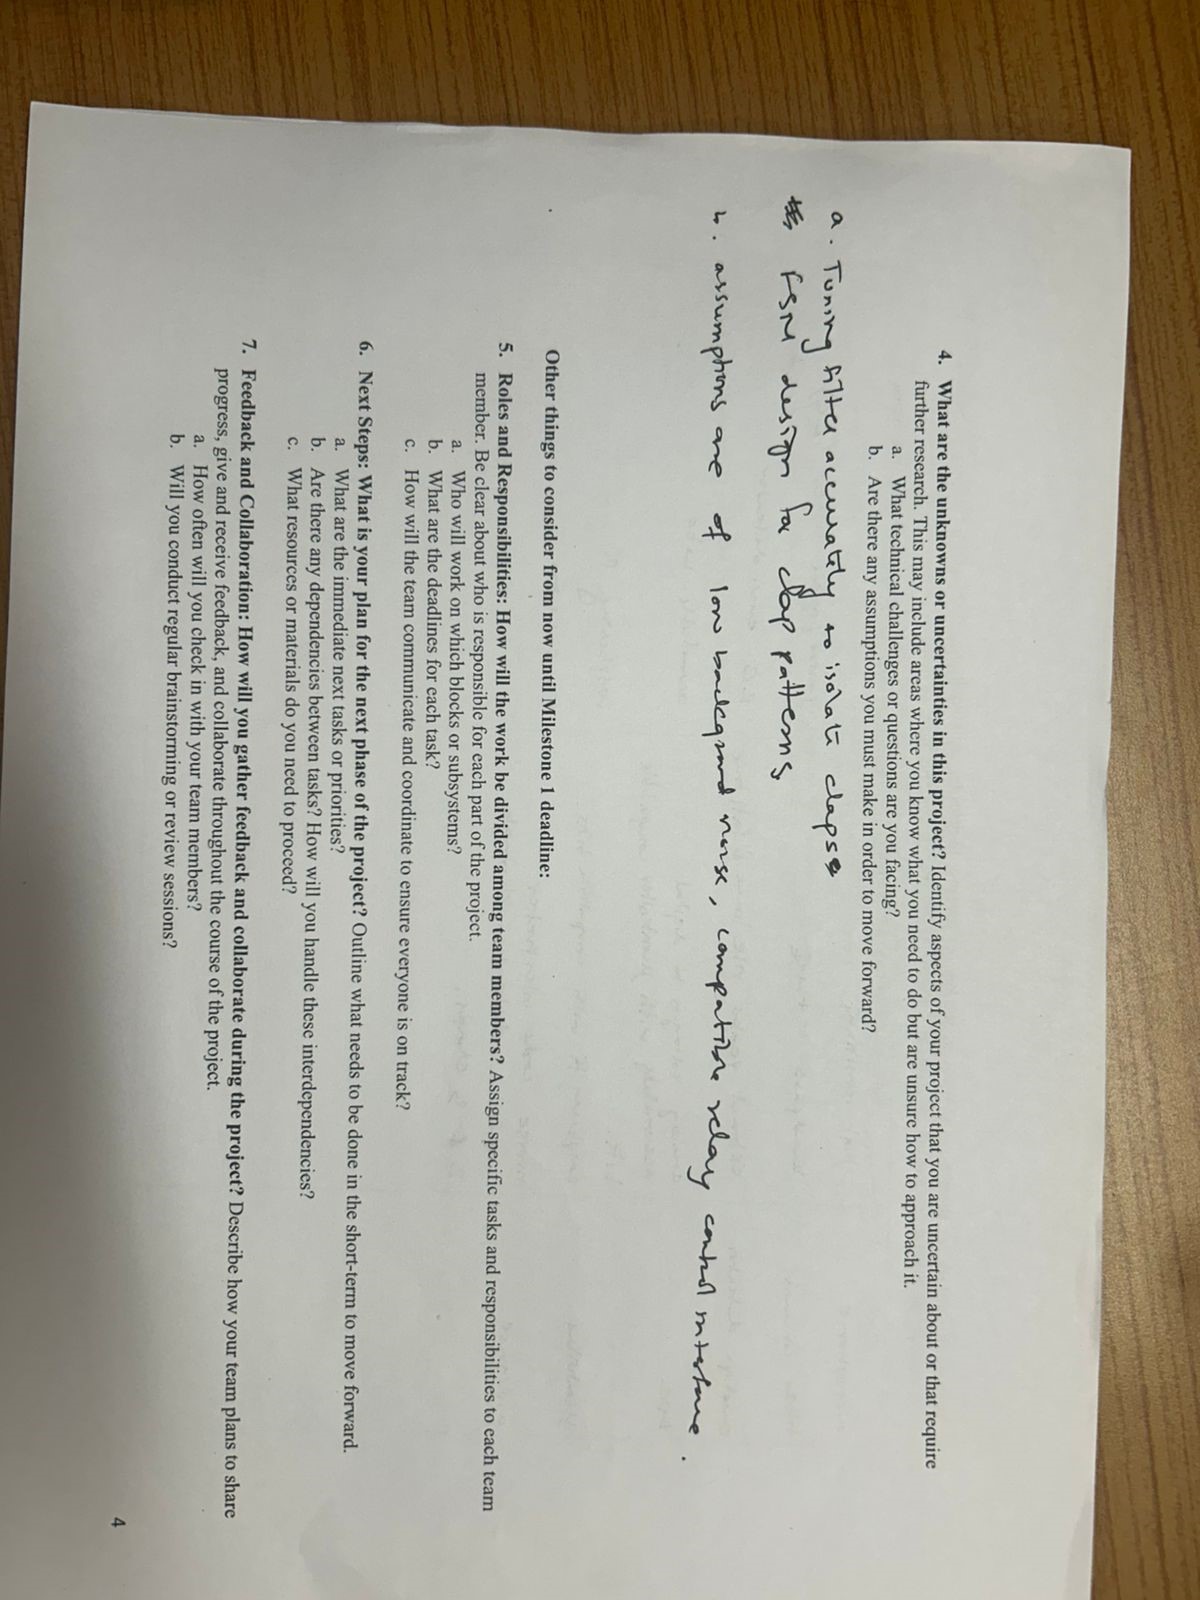 4. What are the unknowns or uncertainties in this project? Identify aspects of your project that you are uncertain about or that require
further research. This may include areas where you know what you need to do but are unsure how to approach it.
a. What technical challenges or questions are you facing?
b. Are there any assumptions you must make in order to move forward?
a. Tuning filter accurately to isolate claps
FSM design for clap patterns
b. assumptions are of low background noise, compatible relay control interface.
Other things to consider from now until Milestone 1 deadline:
5. Roles and Responsibilities: How will the work be divided among team members? Assign specific tasks and responsibilities to each team
member. Be clear about who is responsible for each part of the project.
a. Who will work on which blocks or subsystems?
b. What are the deadlines for each task?
c. How will the team communicate and coordinate to ensure everyone is on track?
6. Next Steps: What is your plan for the next phase of the project? Outline what needs to be done in the short-term to move forward.
a. What are the immediate next tasks or priorities?
b. Are there any dependencies between tasks? How will you handle these interdependencies?
c. What resources or materials do you need to proceed?
7. Feedback and Collaboration: How will you gather feedback and collaborate during the project? Describe how your team plans to share
progress, give and receive feedback, and collaborate throughout the course of the project.
a. How often will you check in with your team members?
b. Will you conduct regular brainstorming or review sessions?
4